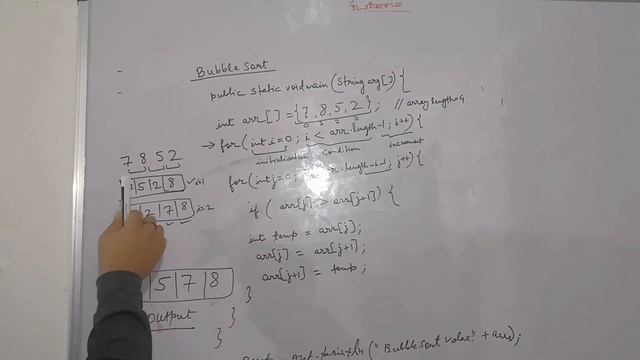 Bubble Sort
public static void main (String arg[]) {
int arr[] = {7, 8, 5, 2}; // array length=4
0 1 2 3
→ for (int i=0; i < arr.length-1; i++) {
initialization condition increment
for (int j=0; arr.length-i-1; j++) {
if ( arr[j] > arr[j+1] ) {
int temp = arr[j];
arr[j] = arr[j+1];
arr[j+1] = temp;
}
}
}
("Bubble sort value" +
7 8 5 2
5 | 2 | 8 i=1
2 | 7 | 8 i=2
5 | 7 | 8
output